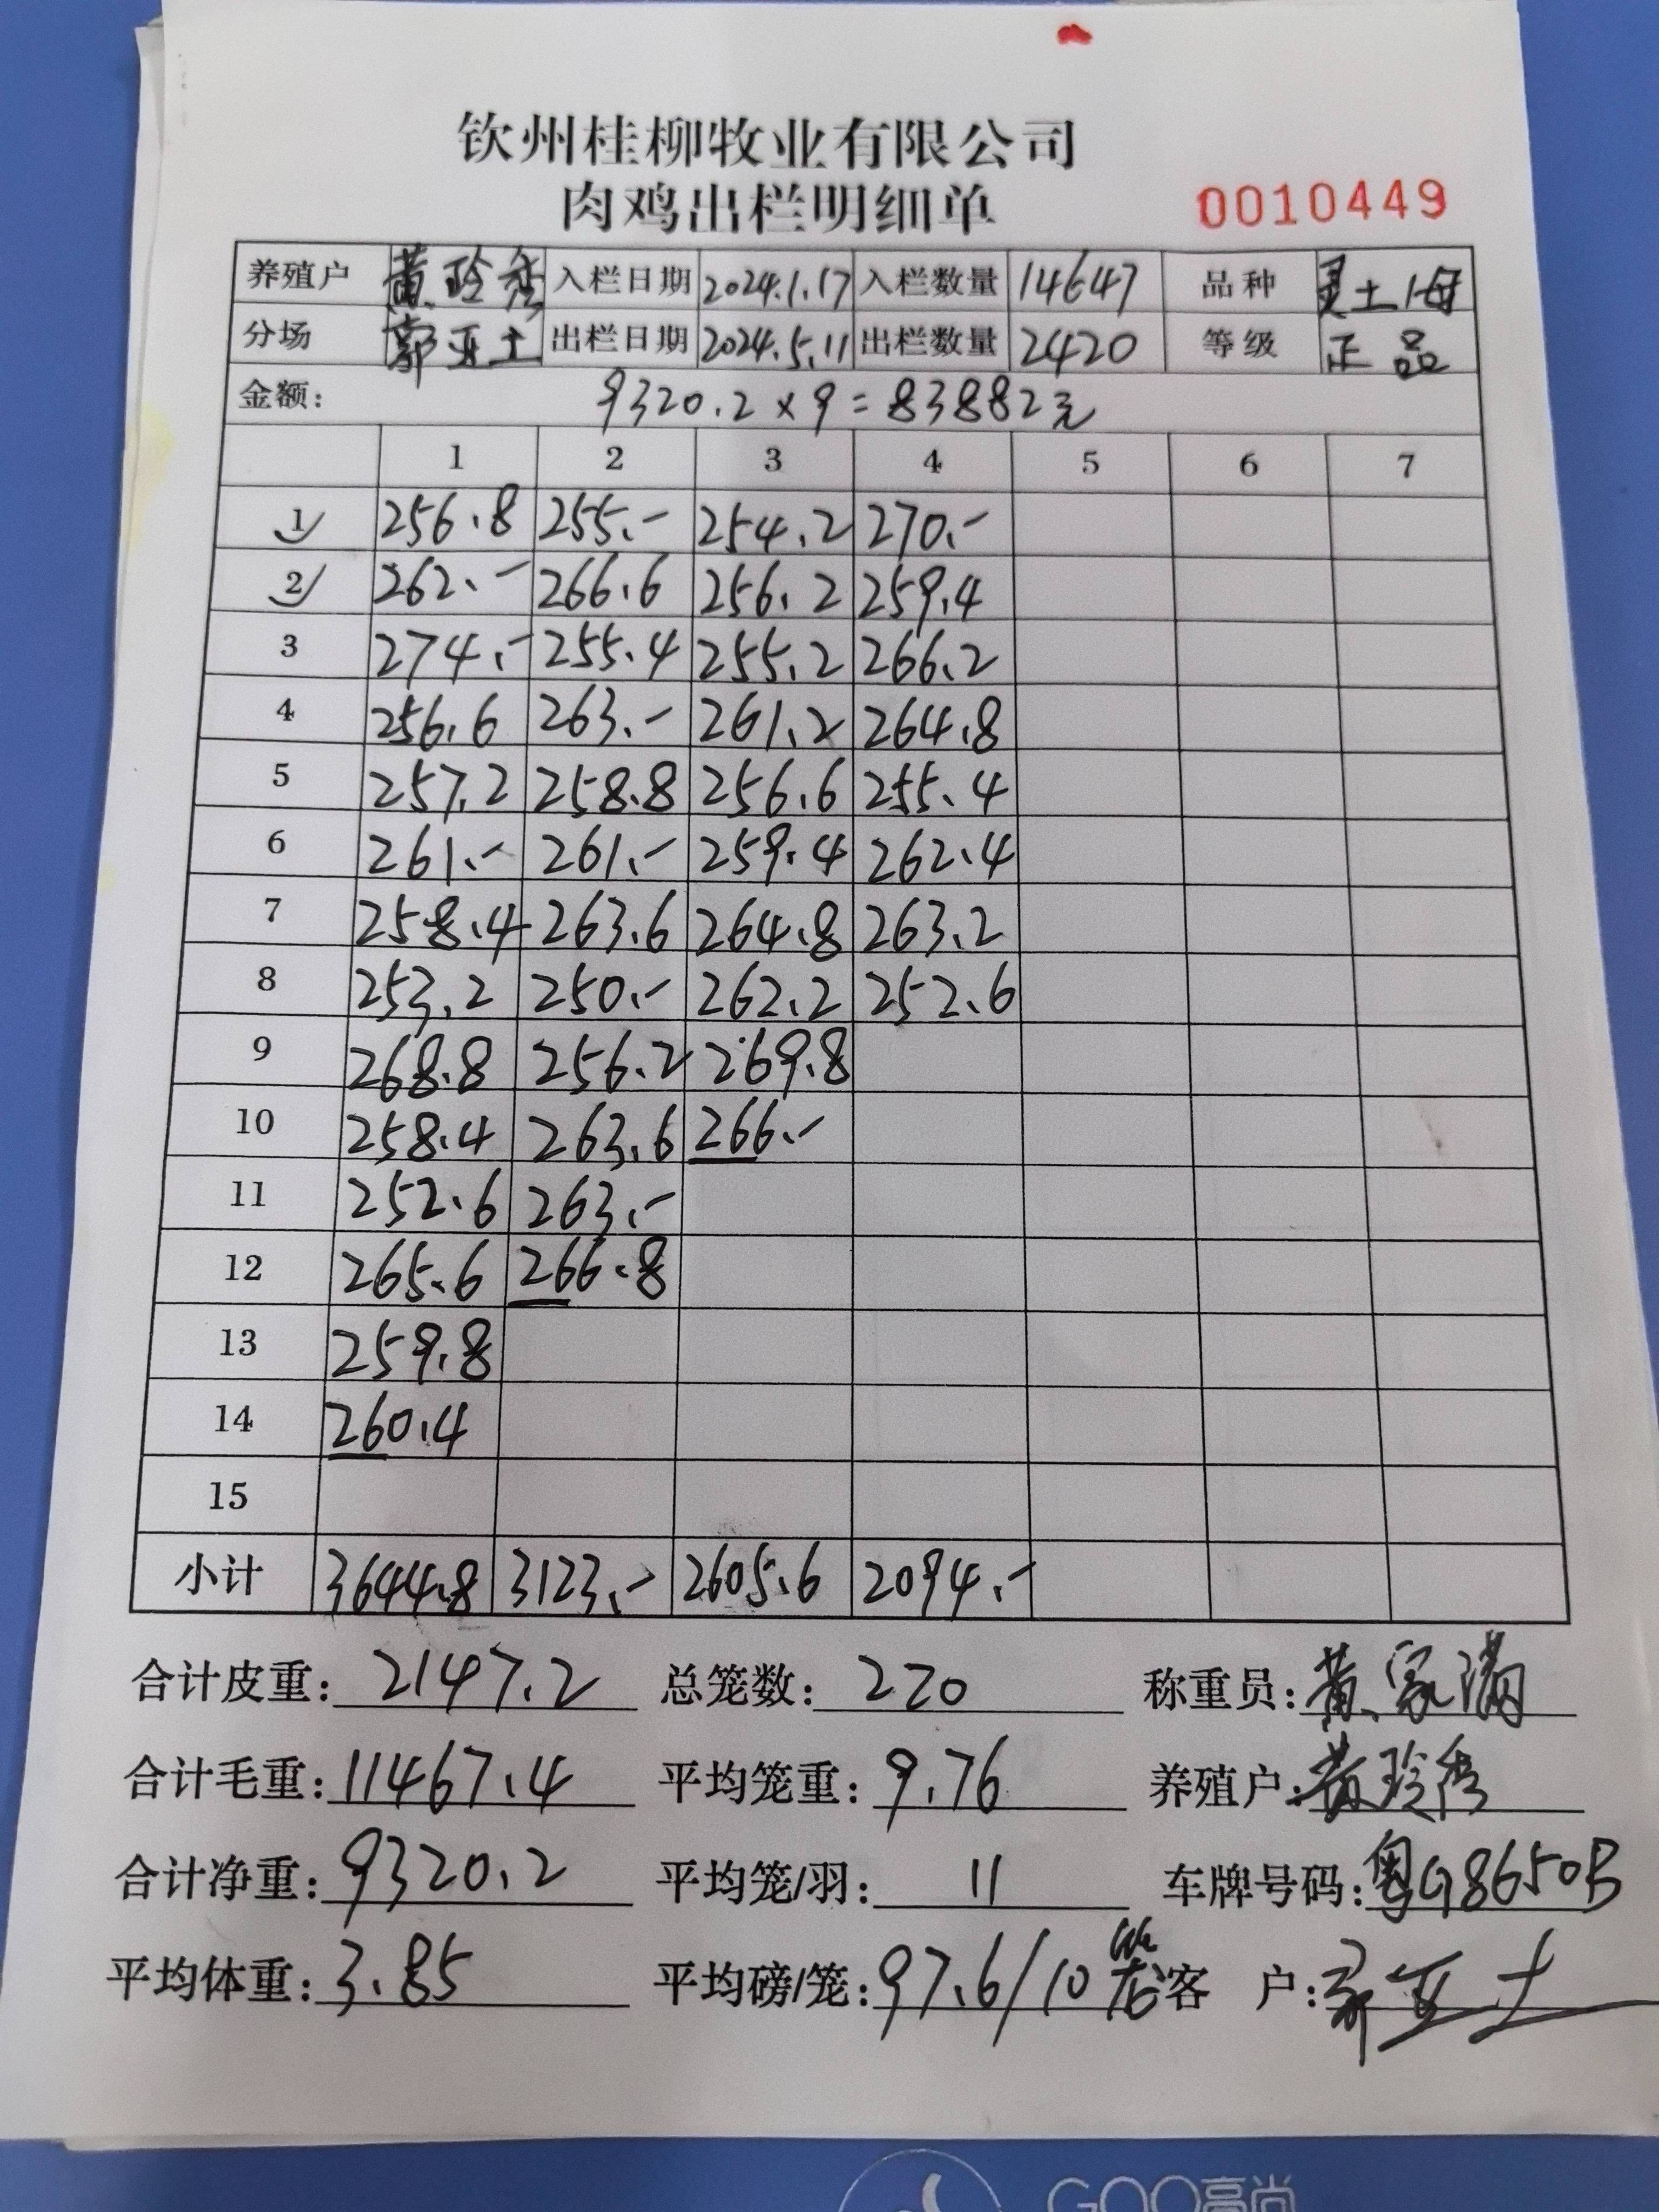 钦州桂柳牧业有限公司
肉鸡出栏明细单 0010449
养殖户 黄玲秀 入栏日期 2024.1.17 入栏数量 14647 品种 灵土1母
分场 郭亚土 出栏日期 2024.5.11 出栏数量 2420 等级 正品
金额: 9320.2×9=83882元
1 2 3 4 5 6 7
1 256.8 255.- 254.2 270.-
2 262.- 266.6 256.2 259.4
3 274.- 255.4 255.2 266.2
4 256.6 263.- 261.2 264.8
5 257.2 258.8 256.6 255.4
6 261.- 261.- 259.4 262.4
7 258.4 263.6 264.8 263.2
8 253.2 250.- 262.2 252.6
9 268.8 256.2 269.8
10 258.4 263.6 266.-
11 252.6 263.-
12 265.6 266.8
13 259.8
14 260.4
15
小计 3644.8 3123.- 2605.6 2094.-
合计皮重: 2147.2 总笼数: 220 称重员: 黄家满
合计毛重: 11467.4 平均笼重: 9.76 养殖户: 黄玲秀
合计净重: 9320.2 平均笼/羽: 11 车牌号码: 粤G8650B
平均体重: 3.85 平均磅/笼: 97.6/10笼 客户: 郭亚土
GOO高尚